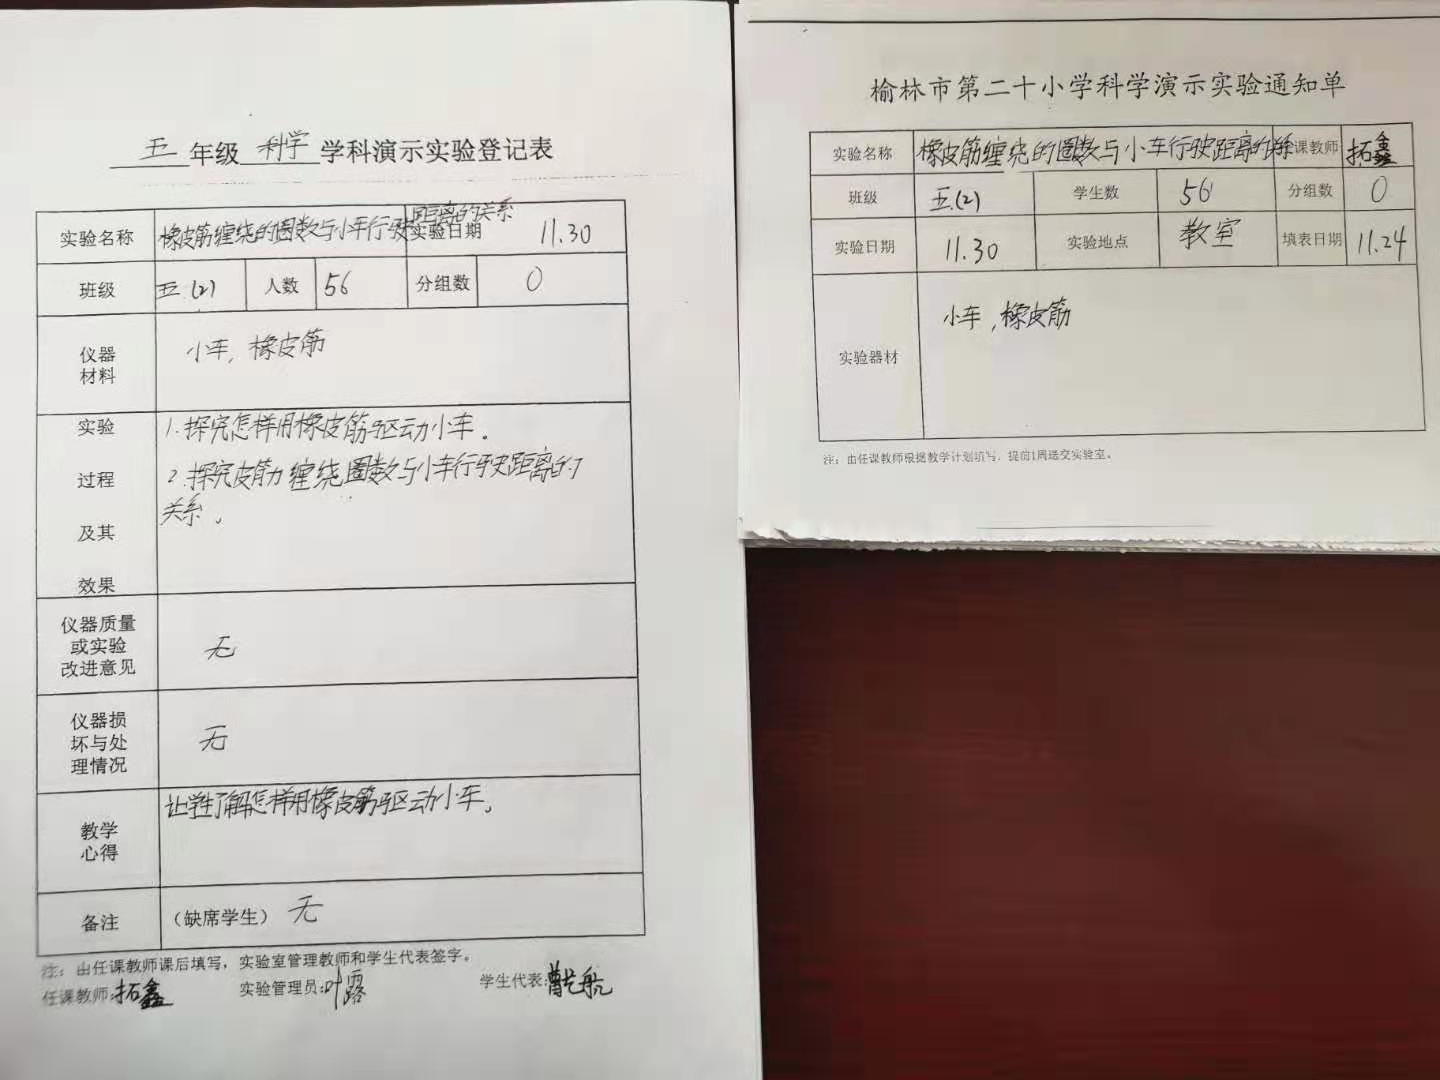 五 年级 科学 学科演示实验登记表
实验名称 橡皮筋缠绕的圈数与小车行驶距离的关系 实验日期 11.30
班级 五(2) 人数 56 分组数 0
仪器
材料
小车,橡皮筋
实验
过程
及其
效果
1.探究怎样用橡皮筋驱动小车。
2.探究皮筋缠绕圈数与小车行驶距离的
关系。
仪器质量
或实验
改进意见
无
仪器损
坏与处
理情况
无
教学
心得
让学生了解怎样用橡皮筋驱动小车。
备注 (缺席学生) 无
注:由任课教师课后填写,实验室管理教师和学生代表签字。
任课教师:拓鑫 实验管理员:叶露 学生代表:曹 航
榆林市第二十小学科学演示实验通知单
实验名称 橡皮筋缠绕的圈数与小车行驶距离的 课教师 拓鑫
班级 五.(2) 学生数 56 分组数 0
实验日期 11.30 实验地点 教室 填表日期 11.24
实验器材 小车,橡皮筋
注:由任课教师根据教学计划填写,提前1周送交实验室。